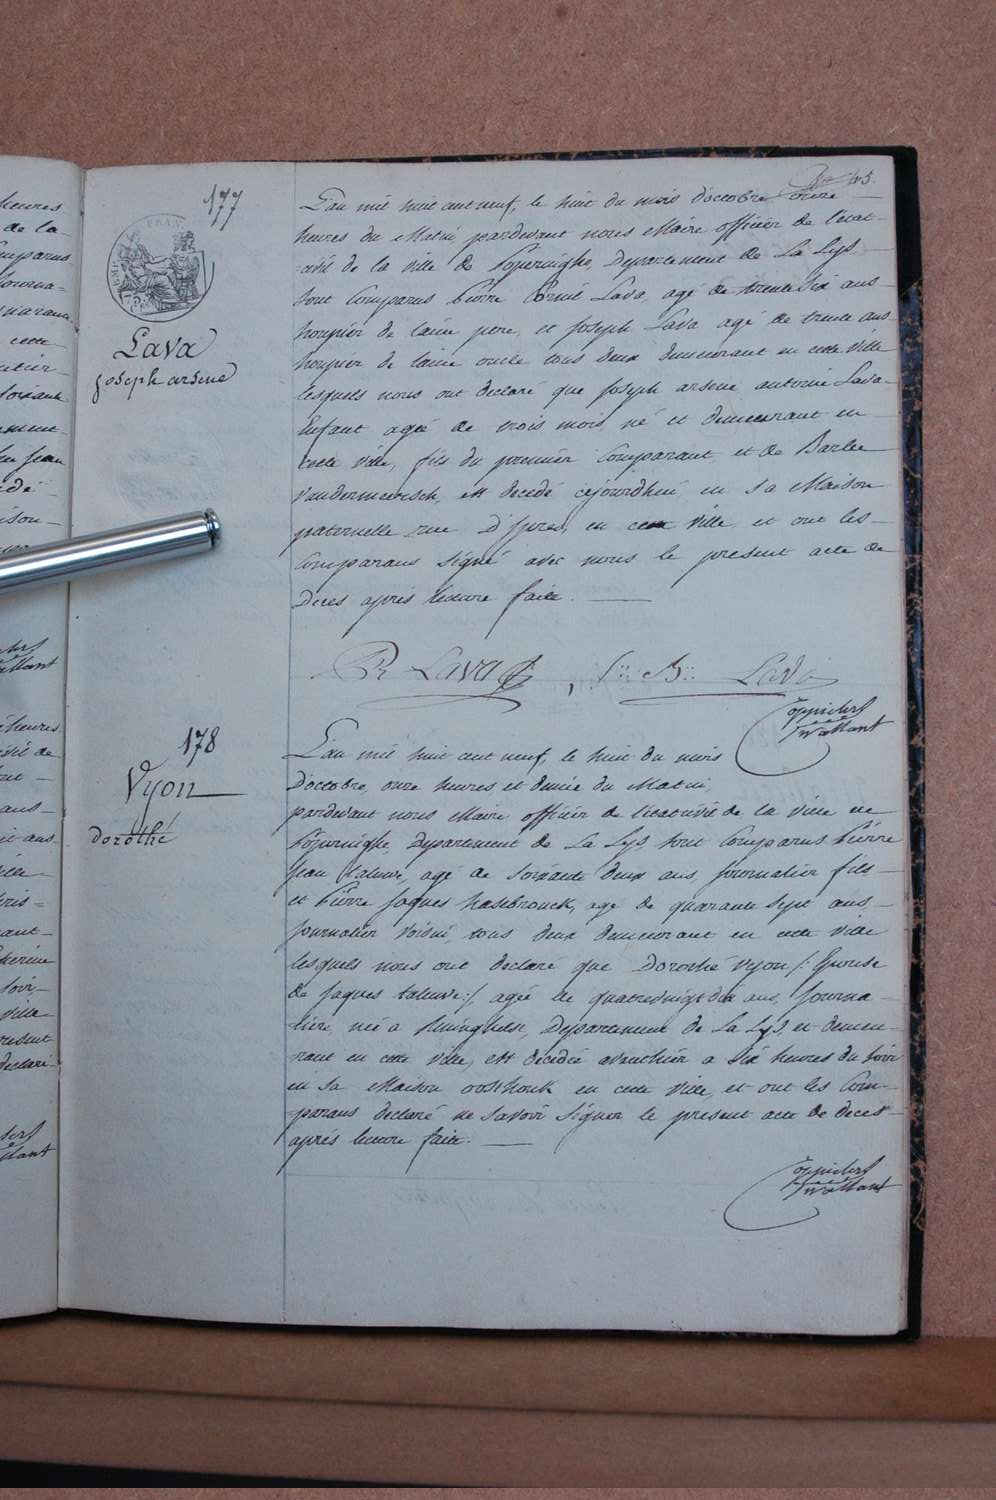 45.
177
FRAN
EMP
75
Lava
joseph arsene
L'an mil huit cent neuf, le huit du mois d'octobre onze
heures du Matin pardevant nous Maire officier de l'etat-
civil de la ville de Poperinghe, Departement de La Lys,
sont Comparus Pierre Cornil Lava, agé de trente six ans
houpier de laine pere, et joseph Lava agé de trente ans
houpier de laine oncle tous deux demeurant en cette ville
lesquels nous ont declaré que joseph arsene antoine Lava
Enfant agé de trois mois, né et demeurant en
cette ville, fils du premier Comparant, et de Barbe
Vandermeersch, est decedé cejourdhui en sa Maison
paternelle rue D'Ypres, en cette ville, et ont les
Comparans signé avec nous le present acte de
Deces après lecture faite.
P. C. LAVA, J: B: Lava
178
Vyon
dorothé
L'an mil huit cent neuf, le huit du mois
D'octobre, onze heures et demie du Matin,
pardevant nous Maire officier de l'etat civil de la ville de
Poperinghe, Departement de La Lys, sont Comparus Pierre
Jean taleuve, agé de soixante deux ans, journalier fils
et Pierre Jaques hasebrouck, agé de quarante sept ans
journalier voisin, tous deux demeurant en cette ville
lesquels nous ont declaré que Dorothé Vyon /: Epouse
de jaques taleuve :/ agée de quatrevingt dix ans, journa-
liere, née a Elvinghelse, Departement de La Lys, et demeu-
rant en cette ville, est decedée avanthier a six heures du soir
en sa Maison oosthouk en cette ville, et ont les Com-
parans declaré ne savoir signer le present acte de deces
après lecture faite.